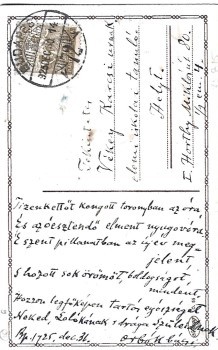 BUDAPEST
Vékey Karcsi urnak,
elemi iskolai tanuló
Helyt.
I. Horthy Miklós út 80.
Tizenkettőt kongott toronyban az óra
És az óesztendő elment nyugovóra
E szent pillanatban az új év meg-
jelent
S hozott sok örömöt, boldogságot
mindent
Hozzon legfőképen tartós egészséget
Néked, Zolikának s drága Szüleidnek
Bp. 1925, dec. 31.